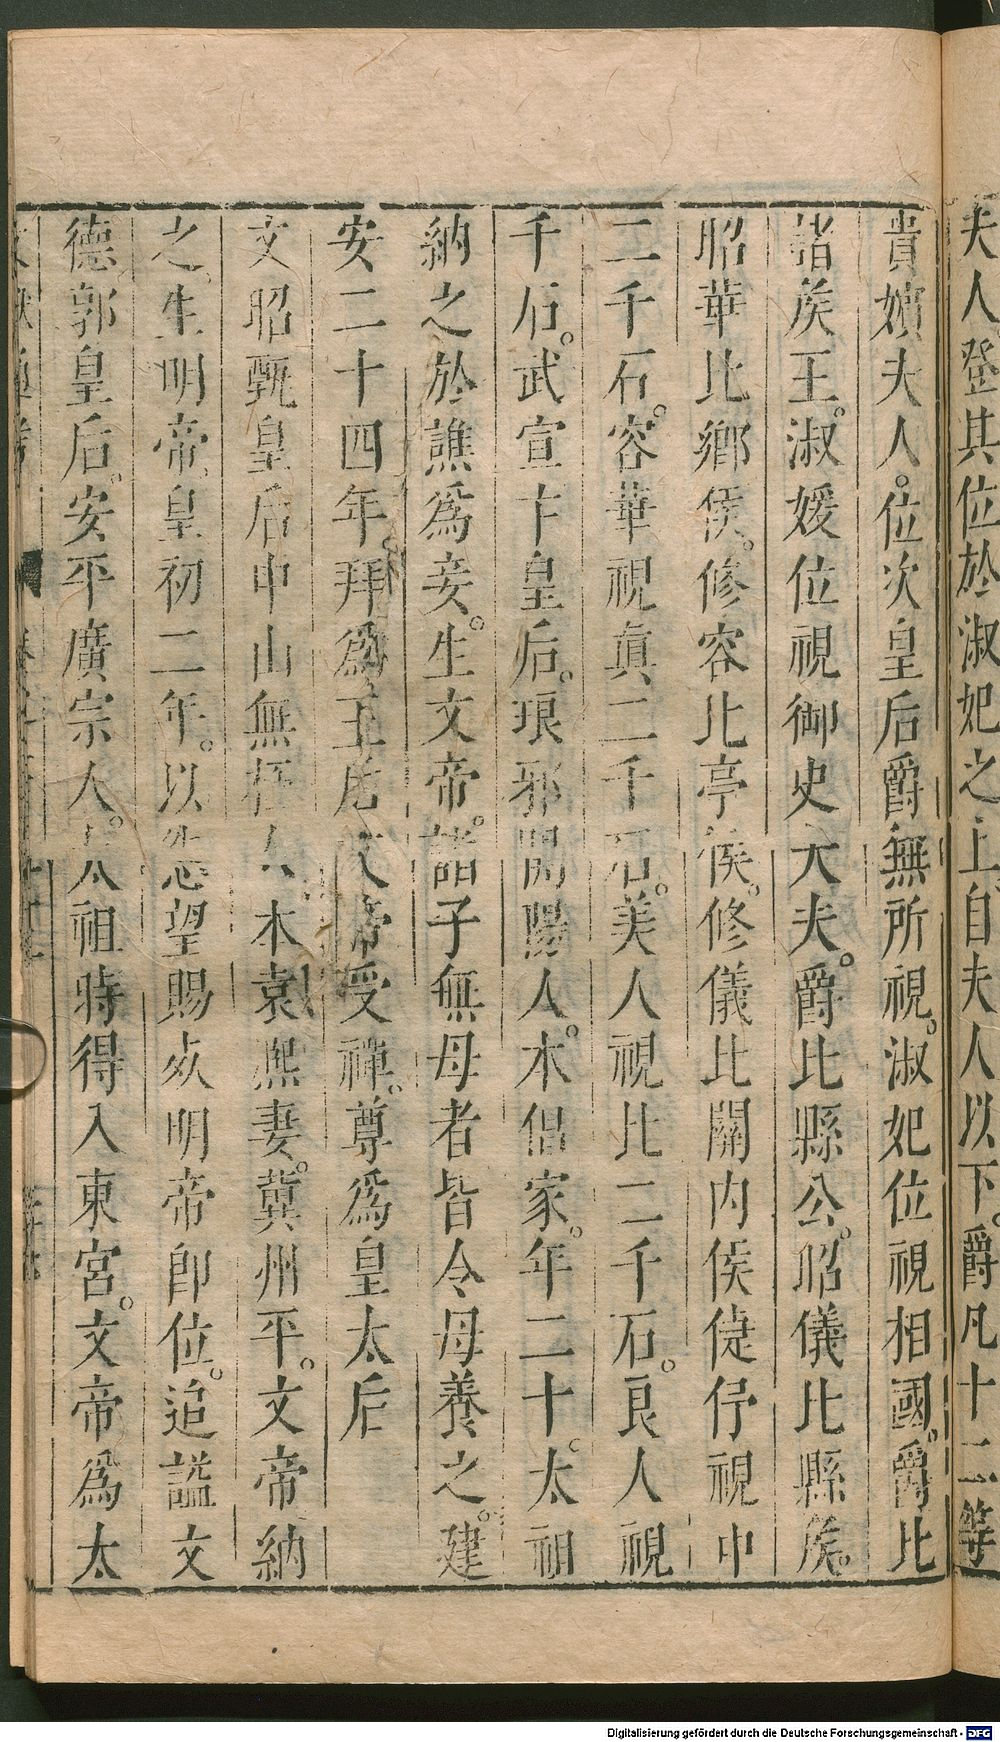 夫人登其位於淑妃之上自夫人以下。爵凡十二等
貴嬪夫人。位次皇后爵無所視。淑妃位視相國。爵比
諸矦王。淑媛位視御史大夫。爵比縣公。昭儀比縣矦。
昭華比鄉侯。修容比亭侯。修儀比關內侯倢伃視中
二千石。容華視眞二千石。美人視比二千石。良人視
千石。武宣卞皇后。琅邪開陽人。本倡家。年二十。太祖
納之於譙爲妾。生文帝。諸子無母者皆令母養之。建
安二十四年。拜爲王后文帝受禪。尊爲皇太后
文昭甄皇后中山無極人。本袁熙妻。冀州平。文帝納
之。生明帝。皇初二年。以怨望賜死明帝卽位。追謚文
德郭皇后。安平廣宗人。太祖時得入東宮。文帝爲太
Digitalisierung gefördert durch die Deutsche Forschungsgemeinschaft - DFG